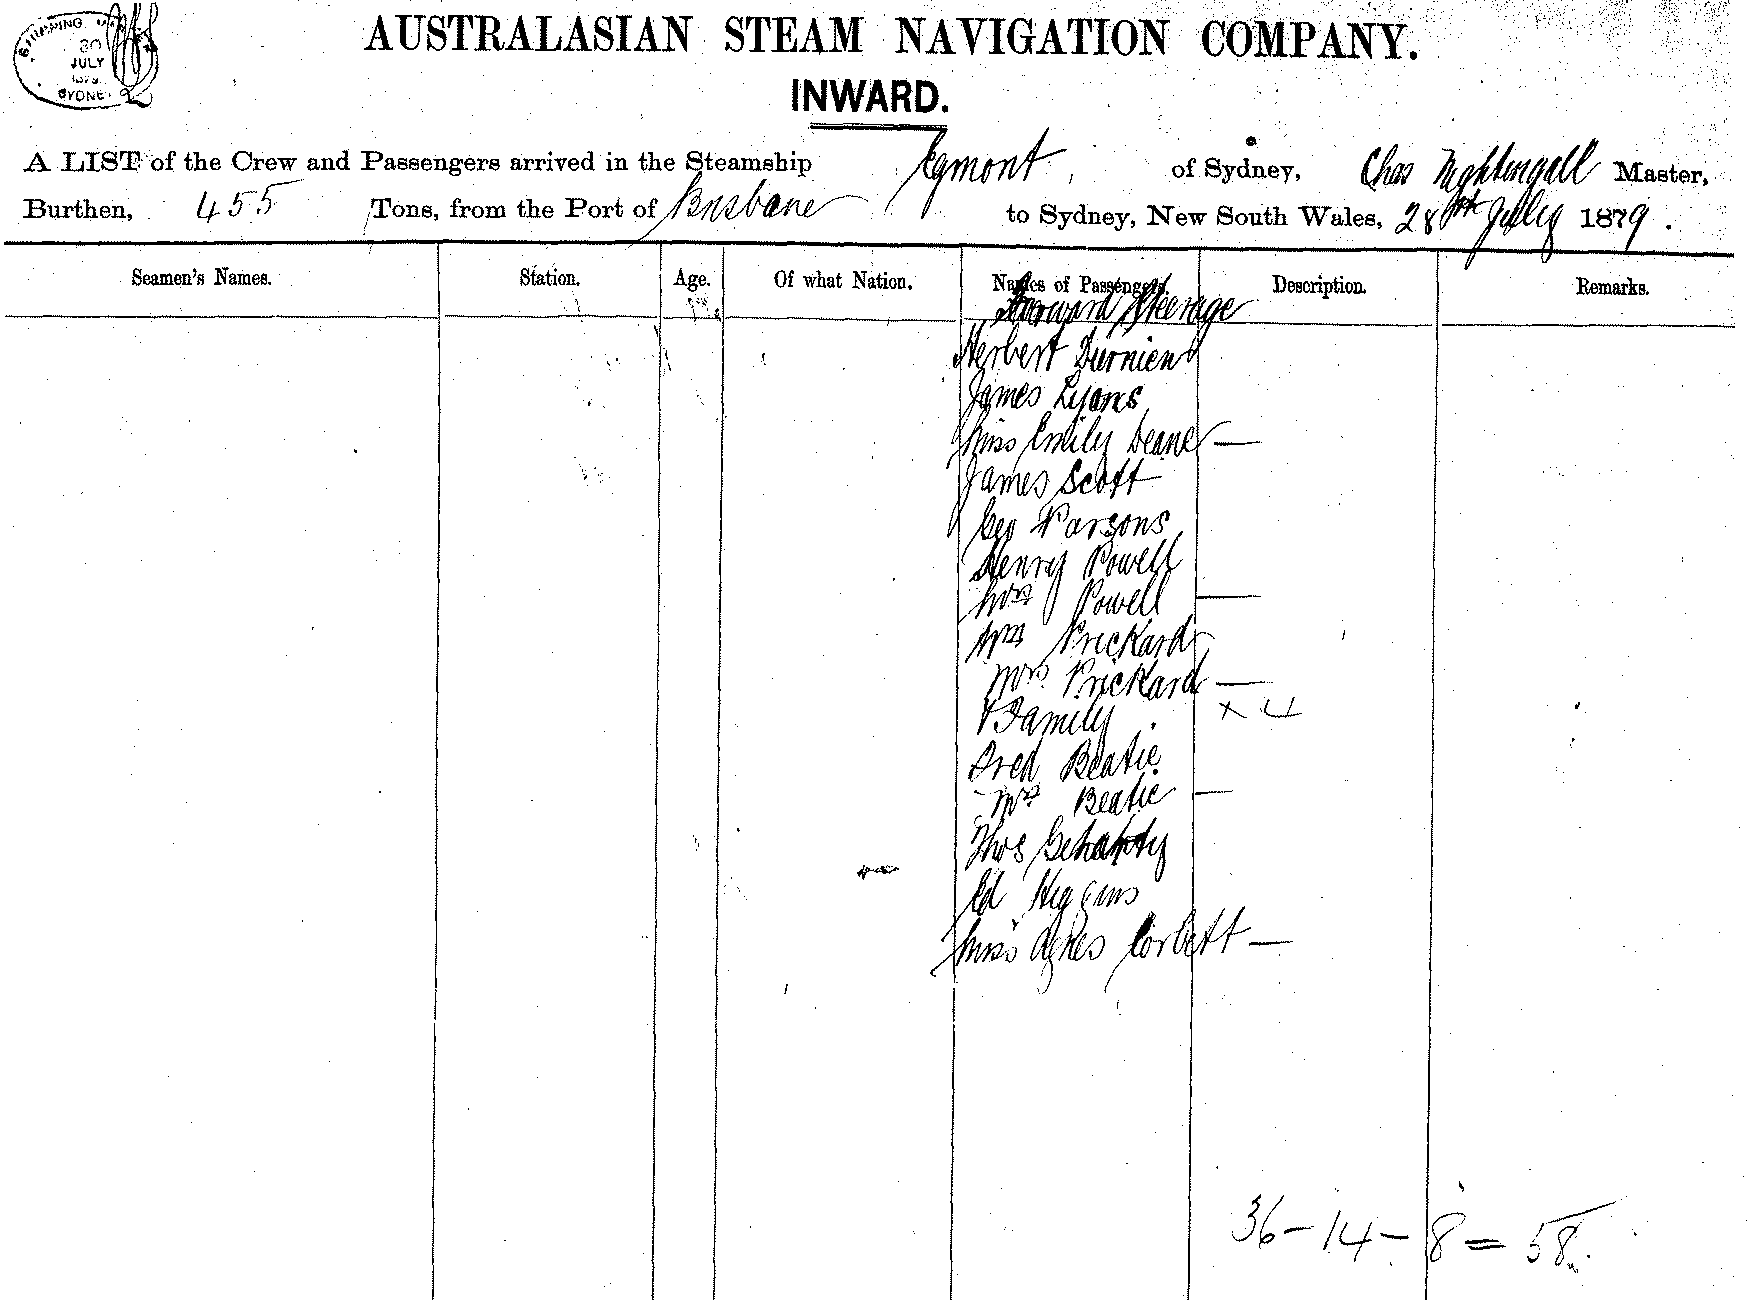 SHIPPING
30
JULY
1879
SYDNEY
AUSTRALASIAN STEAM NAVIGATION COMPANY.
INWARD.
A LIST of the Crew and Passengers arrived in the Steamship Egmont, of Sydney, Chas Nightingall Master,
Burthen, 455 Tons, from the Port of Brisbane to Sydney, New South Wales, 28th July 1879.
Seamen's Names. Station. Age. Of what Nation. Names of Passengers. Description. Remarks.
Forward Steerage
Herbert
James Lyons
Miss Emily Deane —
James Scott
Geo Parsons
Henry Powell
Mrs Powell —
Wm Prickard
Mrs Prickard —
Family x 4
Fred Beatie
Mrs Beatie —
Thos
Ed Higgins
Miss Agnes Corbett —
36 - 14 - 8 = 58.